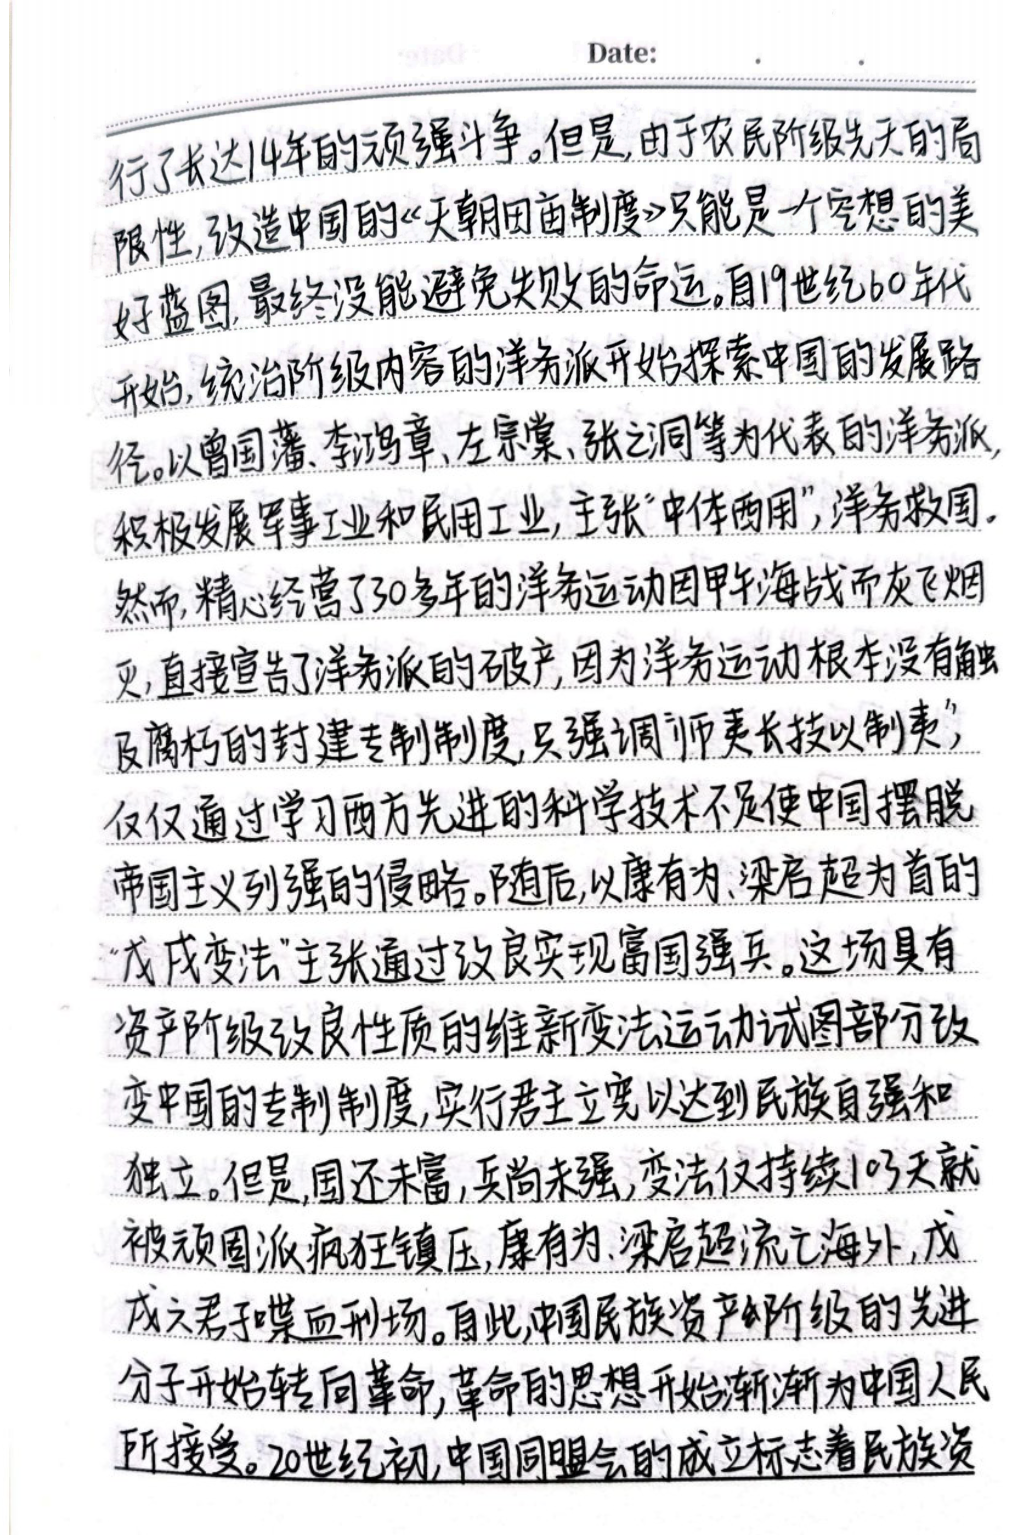 Date: . .
行了长达14年的顽强斗争。但是,由于农民阶级先天的局
限性,改造中国的《天朝田亩制度》只能是一个空想的美
好蓝图,最终没能避免失败的命运。自19世纪60年代
开始,统治阶级内容的洋务派开始探索中国的发展路
径。以曾国藩、李鸿章、左宗棠、张之洞等为代表的洋务派,
积极发展军事工业和民用工业,主张“中体西用”,洋务救国.
然而,精心经营了30多年的洋务运动因甲午海战而灰飞烟
灭,直接宣告了洋务派的破产,因为洋务运动根本没有触
及腐朽的封建专制制度,只强调“师夷长技以制夷”,
仅仅通过学习西方先进的科学技术不足使中国摆脱
帝国主义列强的侵略。随后,以康有为、梁启超为首的
“戊戌变法”主张通过改良实现富国强兵。这场具有
资产阶级改良性质的维新变法运动试图部分改
变中国的专制制度,实行君主立宪以达到民族自强和
独立。但是,国还未富,兵尚未强,变法仅持续103天就
被顽固派疯狂镇压,康有为、梁启超流亡海外,戊
戌六君子喋血刑场。自此,中国民族资产阶级的先进
分子开始转向革命,革命的思想开始渐渐为中国人民
所接受。20世纪初,中国同盟会的成立标志着民族资